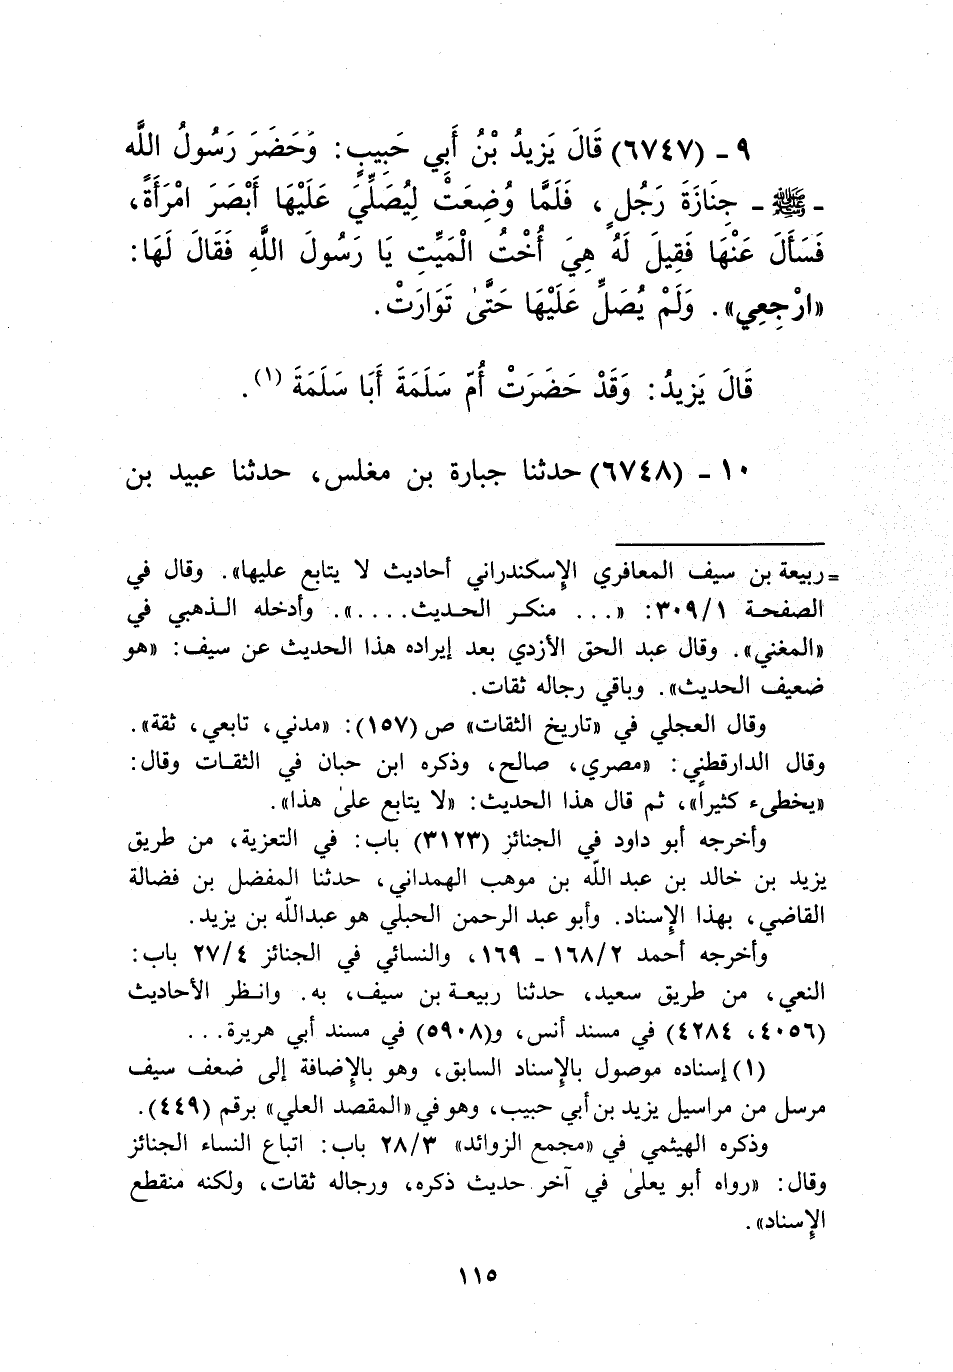 ٩ - (٦٧٤٧) قَالَ يَزِيدُ بْنُ أَبِي حَبِيبٍ: وَحَضَرَ رَسُولُ اللَّه
- ﷺ - جِنَازَةَ رَجُلٍ، فَلَمَّا وُضِعَتْ لِيُصَلِّيَ عَلَيْهَا أَبْصَرَ امْرَأَةً،
فَسَأَلَ عَنْهَا فَقِيلَ لَهُ هِيَ أُخْتُ الْمَيِّتِ يَا رَسُولَ اللَّهِ فَقَالَ لَهَا:
«ارْجِعِي». وَلَمْ يُصَلِّ عَلَيْهَا حَتَّىٰ تَوَارَتْ.
قَالَ يَزِيدُ: وَقَدْ حَضَرَتْ أُمّ سَلَمَةَ أَبَا سَلَمَةَ (١).
١٠ - (٦٧٤٨) حدثنا جبارة بن مغلس، حدثنا عبيد بن
= ربيعة بن سيف المعافري الإسكندراني أحاديث لا يتابع عليها». وقال في
الصفحة ٣٠٩/١: «... منكر الحديث....». وأدخله الذهبي في
«المغني». وقال عبد الحق الأزدي بعد إيراده هذا الحديث عن سيف: «هو
ضعيف الحديث». وباقي رجاله ثقات.
وقال العجلي في «تاريخ الثقات» ص (١٥٧): «مدني، تابعي، ثقة».
وقال الدارقطني: «مصري، صالح، وذكره ابن حبان في الثقات وقال:
«يخطىء كثيراً»، ثم قال هذا الحديث: «لا يتابع علىٰ هذا».
وأخرجه أبو داود في الجنائز (٣١٢٣) باب: في التعزية، من طريق
يزيد بن خالد بن عبد اللّه بن موهب الهمداني، حدثنا المفضل بن فضالة
القاضي، بهذا الإسناد. وأبو عبد الرحمن الحبلي هو عبداللّه بن يزيد.
وأخرجه أحمد ١٦٨/٢ - ١٦٩، والنسائي في الجنائز ٢٧/٤ باب:
النعي، من طريق سعيد، حدثنا ربيعة بن سيف، به. وانظر الأحاديث
(٤٠٥٦، ٤٢٨٤) في مسند أنس، و(٥٩٠٨) في مسند أبي هريرة...
(١) إسناده موصول بالإسناد السابق، وهو بالإضافة إلى ضعف سيف
مرسل من مراسيل يزيد بن أبي حبيب، وهو في «المقصد العلي» برقم (٤٤٩).
وذكره الهيثمي في «مجمع الزوائد» ٢٨/٣ باب: اتباع النساء الجنائز
وقال: «رواه أبو يعلىٰ في آخر حديث ذكره، ورجاله ثقات، ولكنه منقطع
الإسناد».
١١٥